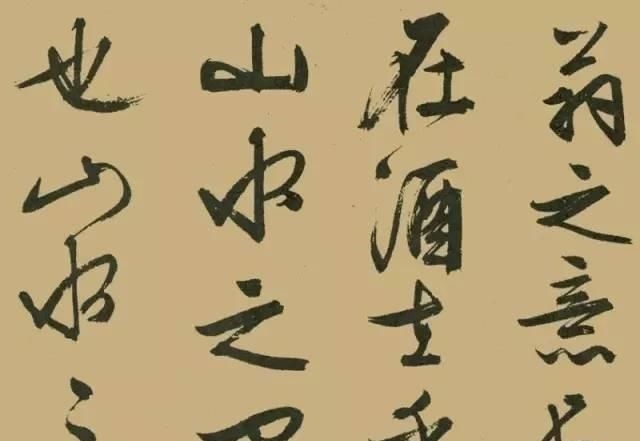 翁之意
在酒在乎
山水之
也山水之